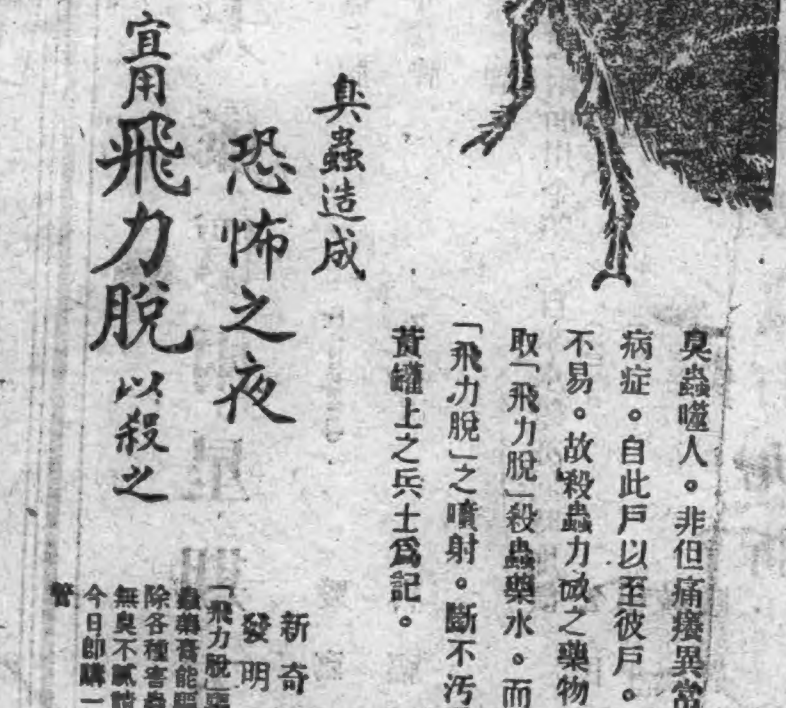 臭蟲噬人。非但痛癢異常
病症。自此戶以至彼戶。
不易。故殺蟲力微之藥物
取「飛力脫」殺蟲藥水。而
「飛力脫」之噴射。斷不汚
黃罐上之兵士爲記。
臭蟲造成
恐怖之夜
宜用飛力脫以殺之
新奇
發明
「飛力脫」
蟲藥膏能驅
除各種害蟲
無臭不膩
今日卽購一
管